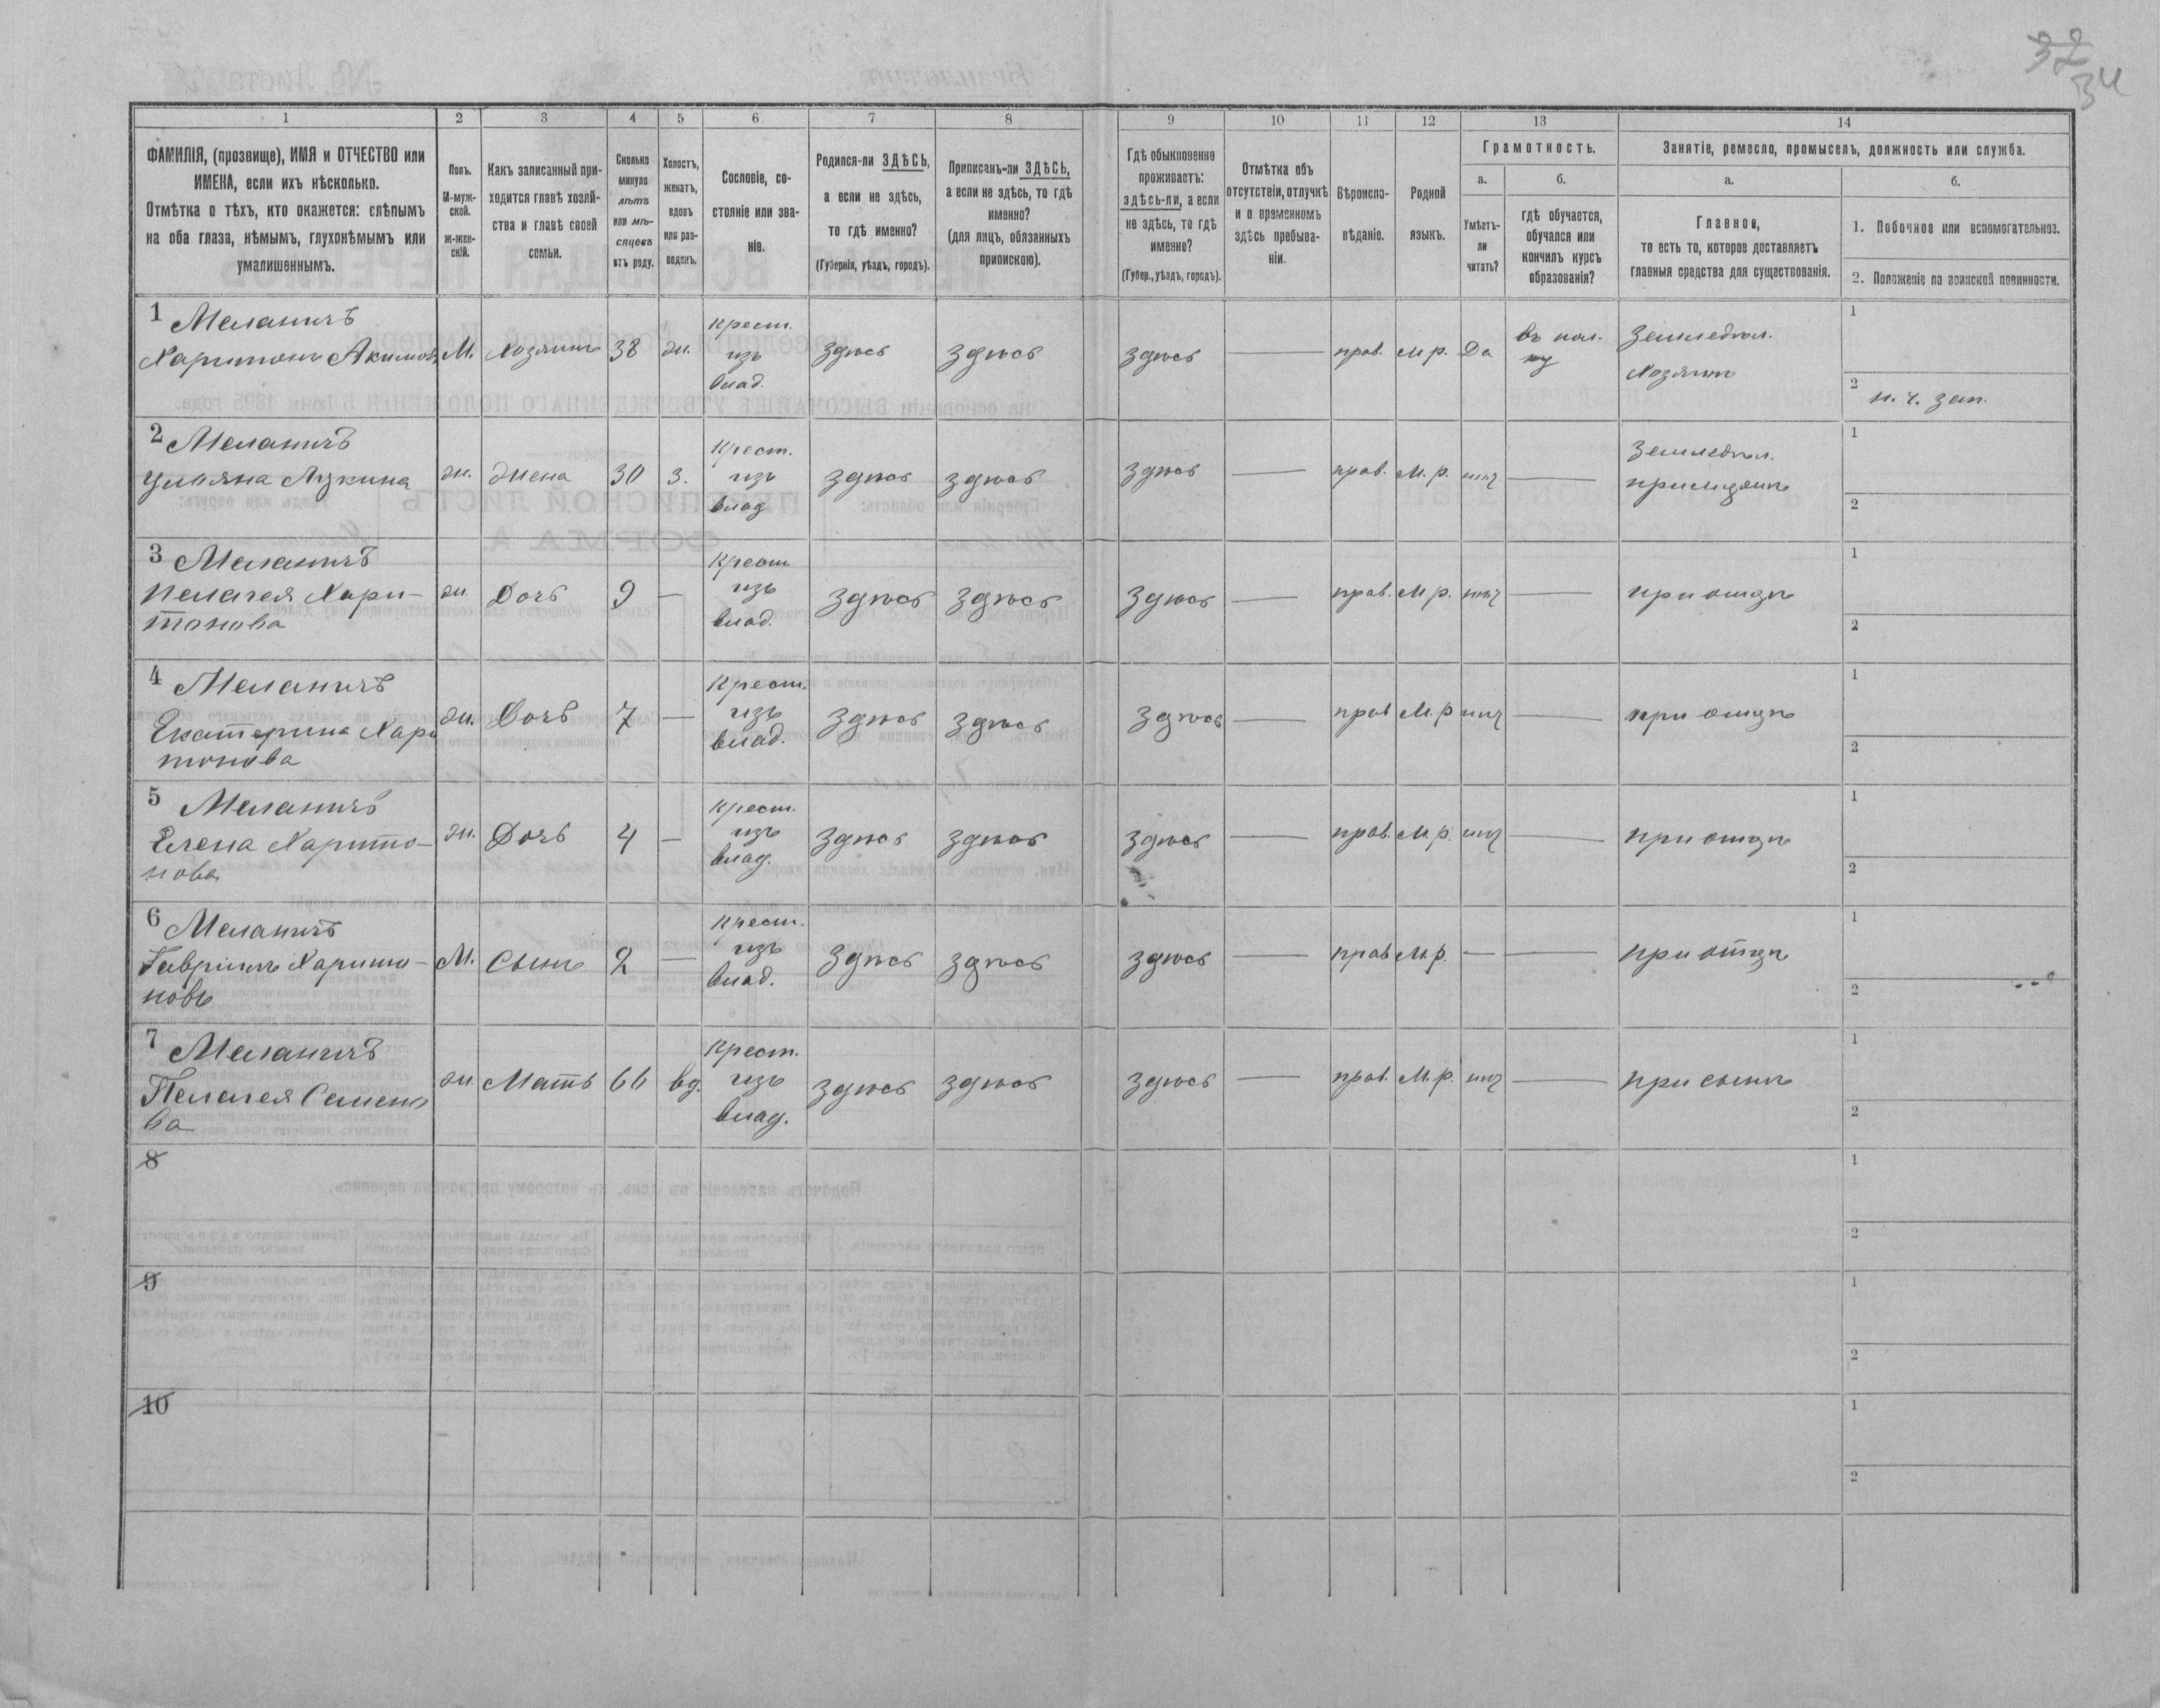 32
34
1 2 3 4 5 6 7 8 9 10 11 12 13 14
ФАМИЛІЯ, (прозвище), ИМЯ и ОТЧЕСТВО или
ИМЕНА, если ихъ нѣсколько.
Отмѣтка о тѣхъ, кто окажется: слѣпымъ
на оба глаза, нѣмымъ, глухонѣмымъ или
умалишеннымъ.
Полъ.
М-муж-
ской.
ж-жен-
скій.
Какъ записанный при-
ходится главѣ хозяй-
ства и главѣ своей
семьи.
Сколько
минуло
лѣтъ
или мѣ-
сяцевъ
отъ роду.
Холостъ,
женатъ,
вдовъ
или раз-
веденъ.
Сословіе, со-
стояніе или зва-
ніе.
Родился-ли ЗДѢСЬ,
а если не здѣсь,
то гдѣ именно?
(Губернія, уѣздъ, городъ).
Приписанъ-ли ЗДѢСЬ,
а если не здѣсь, то гдѣ
именно?
(для лицъ, обязанныхъ
припискою).
Гдѣ обыкновенно
проживаетъ:
здѣсь-ли, а если
не здѣсь, то гдѣ
именно?
(Губер., уѣздъ, городъ).
Отмѣтка объ
отсутствіи, отлучкѣ
и о временномъ
здѣсь пребыва-
ніи.
Вѣроиспо-
вѣданіе.
Родной
языкъ.
Грамотность.
а.
Умѣетъ-
ли
читать?
б.
гдѣ обучается,
обучался или
кончилъ курсъ
образованія?
Занятіе, ремесло, промыселъ, должность или служба.
а.
Главное,
то есть то, которое доставляетъ
главныя средства для существованія.
б.
1. Побочное или вспомогательное.
2. Положеніе по воинской повинности.
1 Меланичъ
Харитонъ Акимовъ М. Хозяинъ 38 ж. Крест. изъ влад. здѣсь здѣсь здѣсь — прав. М.р. Да въ пол-ку Земледѣл. Хозяинъ
1
2 н. ч. зап.
2 Меланичъ
Ульяна Лукина ж. Жена 30 з. Крест. изъ влад здѣсь здѣсь здѣсь — прав. М.р. нѣт — Земледѣл. при мужѣ
1
2
3 Меланичъ
Пелагея Хари-
тонова ж Дочь 9 — Крест изъ влад. здѣсь здѣсь здѣсь — прав. М.р. нѣт — при отцѣ
1
2
4 Меланичъ
Екатерина Хари
тонова ж. Дочь 7 — Крест. изъ влад. здѣсь здѣсь здѣсь — прав М.р нѣт — при отцѣ
1
2
5 Меланичъ
Елена Харито-
нова ж. Дочь 4 — Крест. изъ влад. здѣсь здѣсь здѣсь — прав. М.р. нѣт — при отцѣ
1
2
6 Меланичъ
Гавріилъ Харито-
новъ М. Сынъ 2 — Крест. изъ влад. здѣсь здѣсь здѣсь — прав М.р. — — при отцѣ
1
2
7 Меланичъ
Пелагея Семено
ва ж. Мать 66 вд. Крест. изъ влад. здѣсь здѣсь здѣсь — прав. М.р. нѣт — при сынѣ
1
2
8
1
2
9
1
2
10
1
2